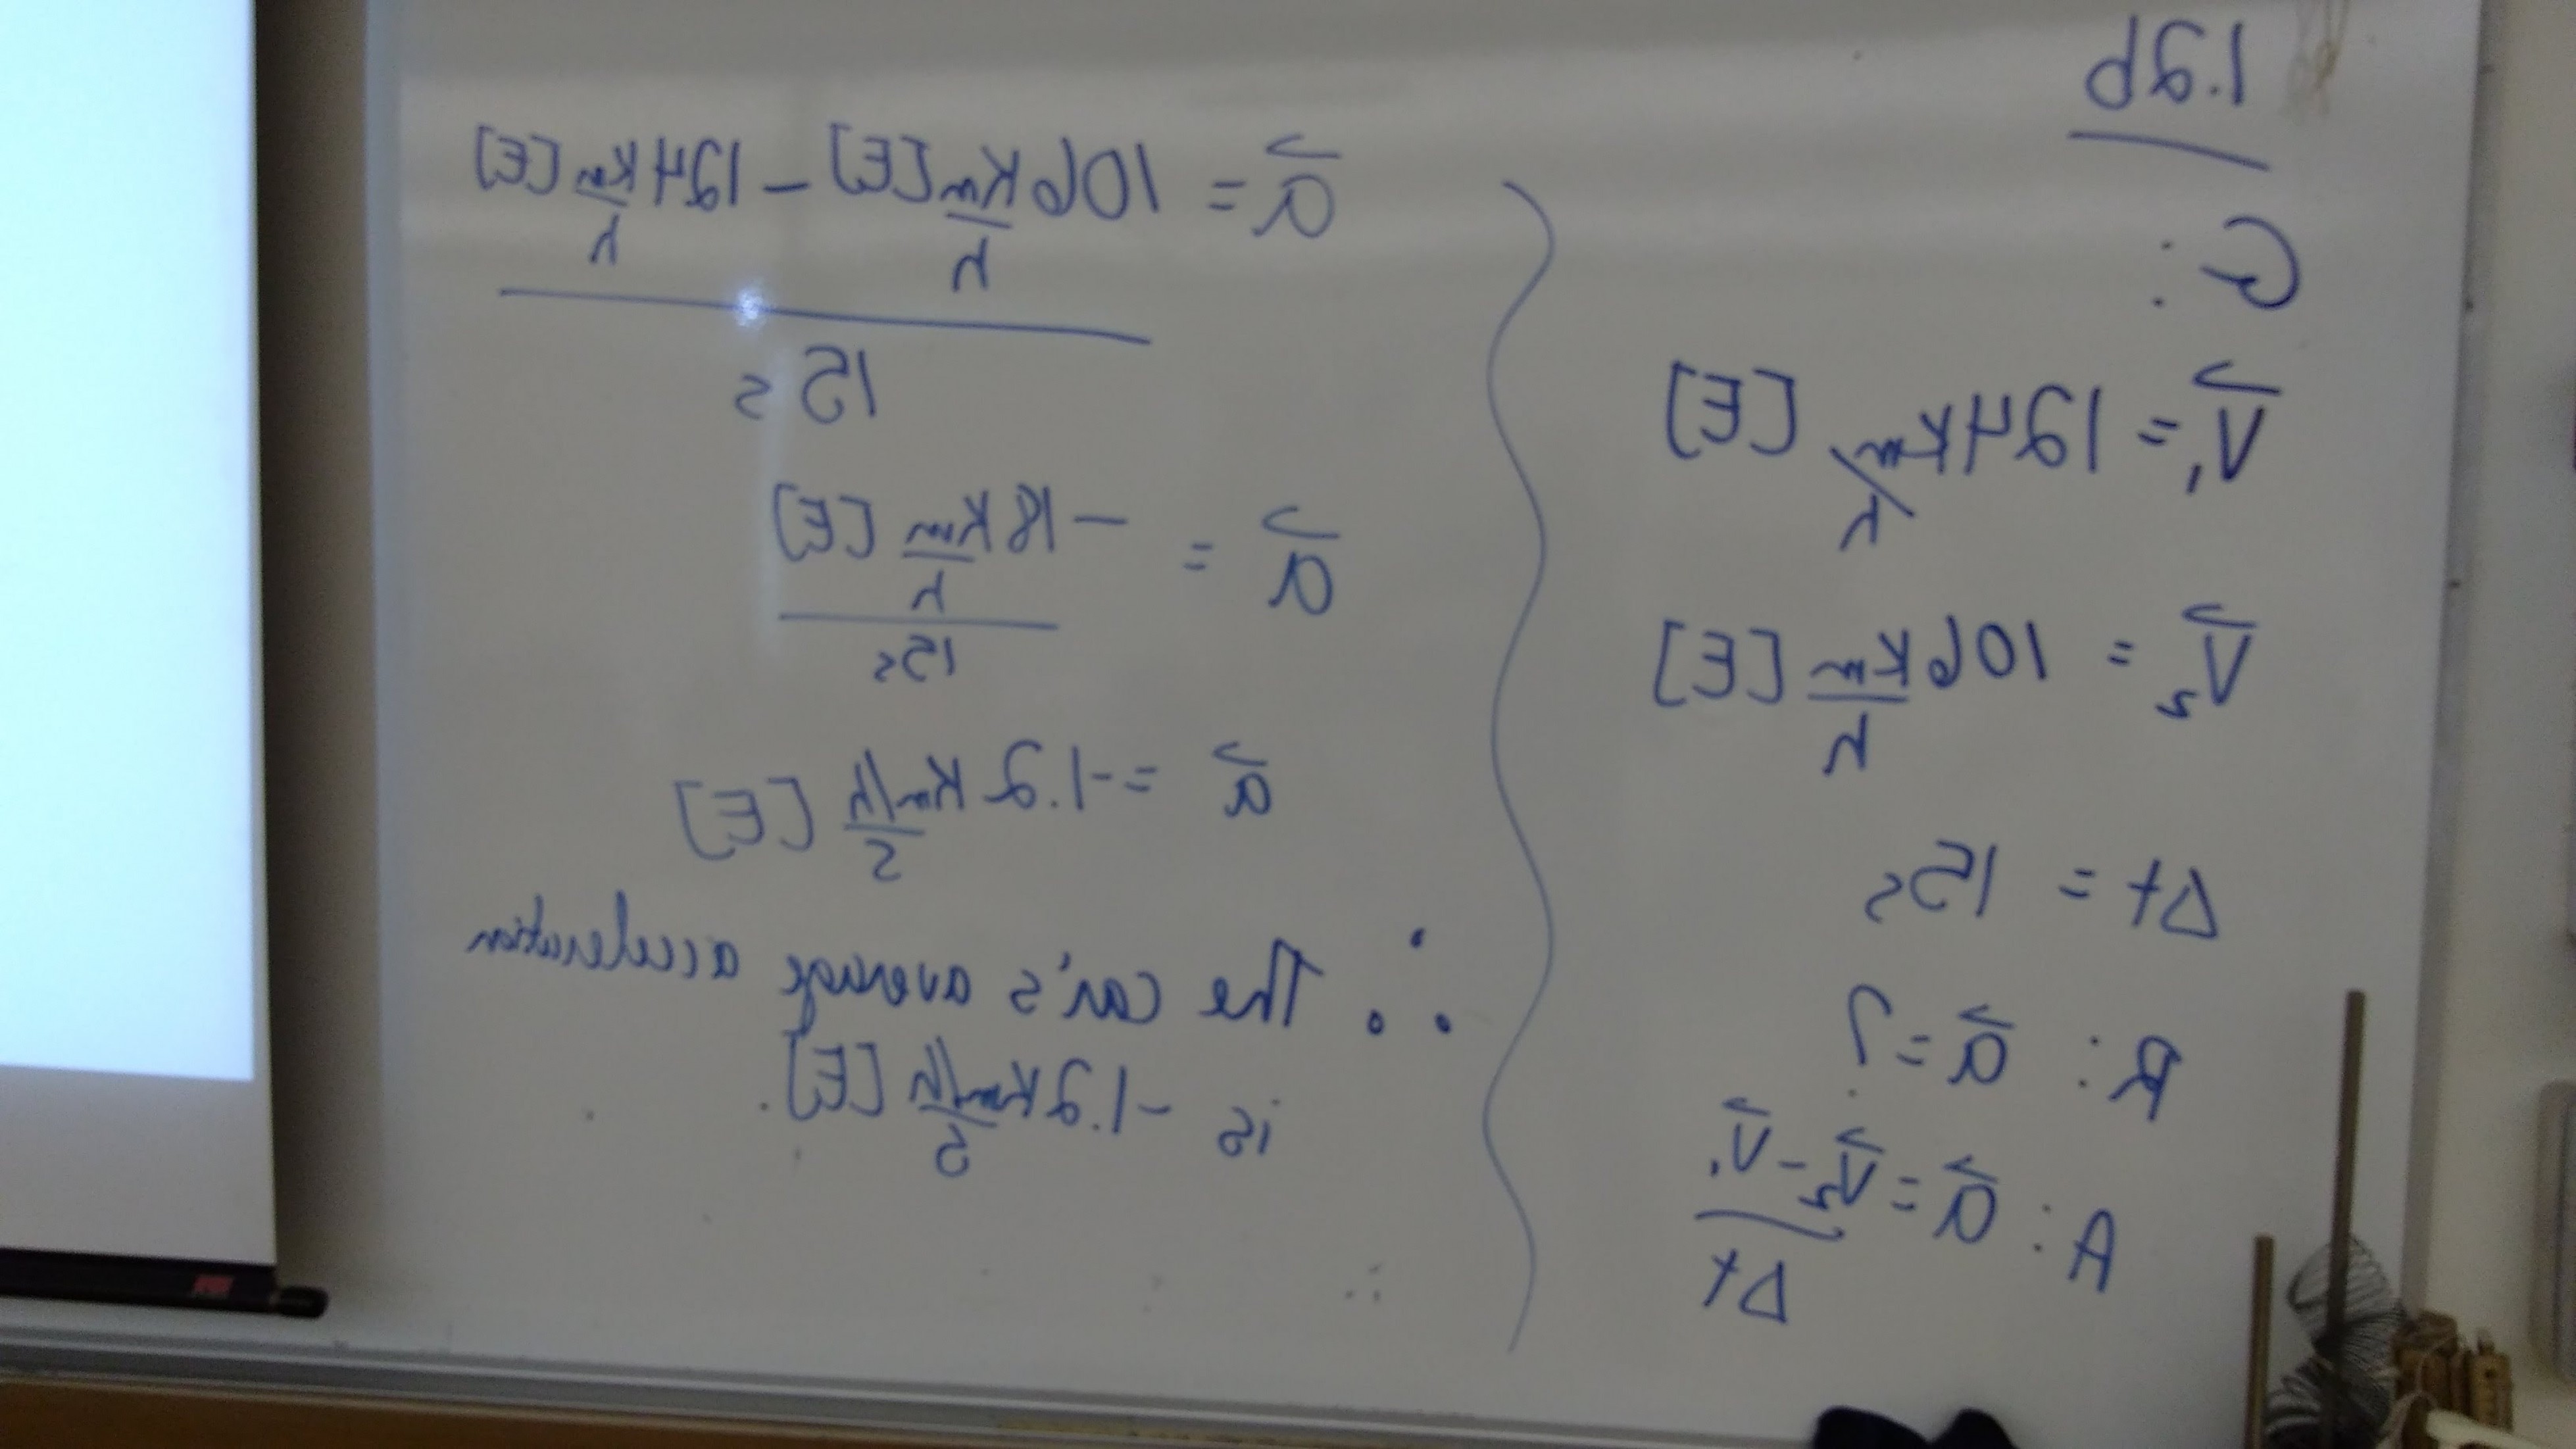 1.2b
G:
V⃗₁ = 124 Km/h [E]
V⃗₂ = 106 Km/h [E]
Δt = 15s
R: a⃗ = ?
A: a⃗ = V⃗₂ - V⃗₁
Δt
a⃗ = 106 Km/h [E] - 124 Km/h [E]
15 s
a⃗ = - 18 Km/h [E]
15s
a⃗ = -1.2 Km/h/s [E]
∴ The car's average acceleration
is -1.2 Km/h/s [E].